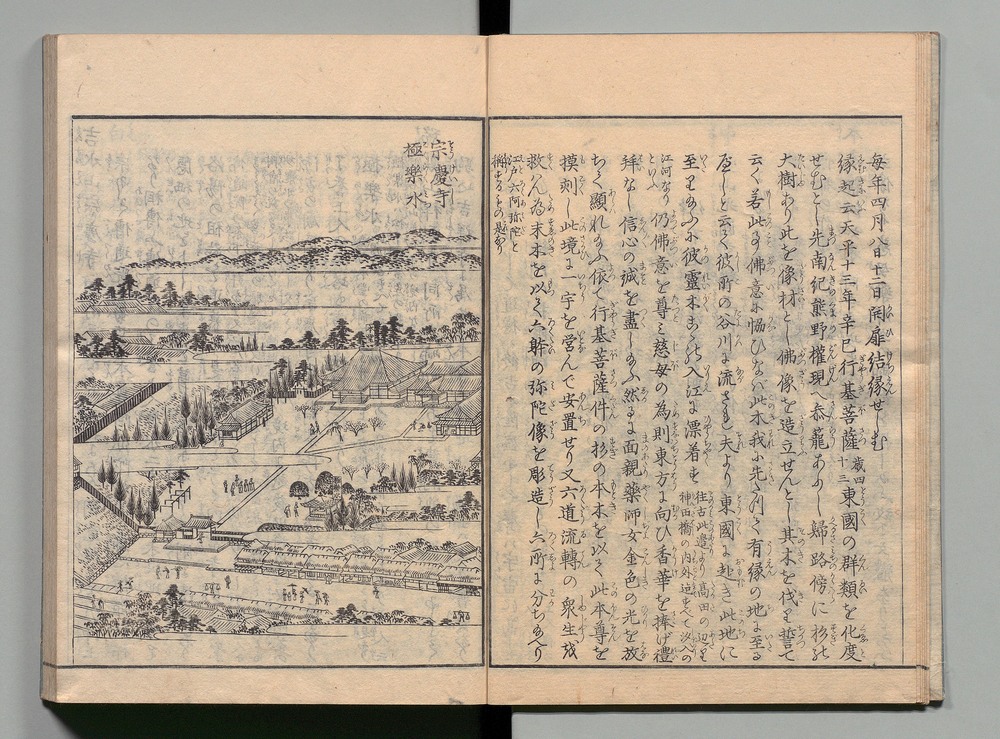 毎年四月八日十二日開扉結縁せしむ
縁起云天平十三年辛巳行基菩薩歳四十三東國の群類を化度
せむとし先南紀熊野權現へ恭籠ありし歸路傍に杉の
大樹あり此を像材とし佛像を造立せんとし其木を伐り誓て
云く若此事佛意に協ひなハ此木我に先立て有縁の地に至る
へしと云々彼所の谷川に流さる夫より東國に赴き此地に
至りたまふに彼靈木この入江に漂着す往古此邊より高田の辺
神田橋の内外迄すへて汐入の
江河なり
といふ仍佛意を尊ミ慈母の為則東方に向ひ香華を捧け禮
拜なし信心の誠を盡したまふ然るに面親藥師女金色の光を放
ちて顯れたまふ依て行基菩薩件の杉の本木を以て此本尊を
摸刻し此境に一宇を営んて安置せり又六道流轉の衆生を
救ん為末木を以て六躰の弥陀像を彫造し六所に分ちたまへり
江戸六阿弥陀と
稱するもの是なり
宗慶寺
極樂水